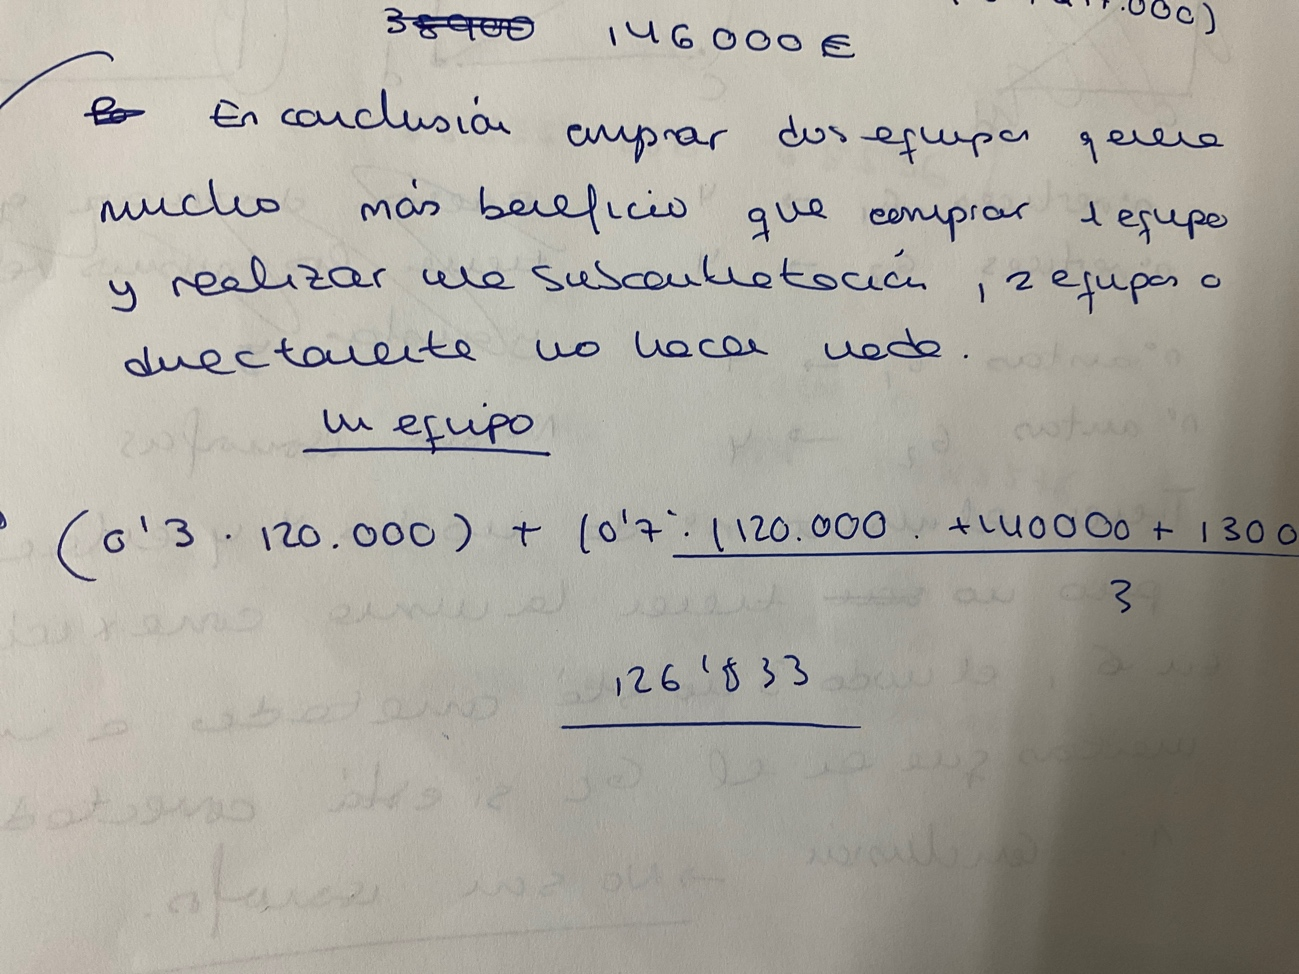 146000€
En conclusión comprar dos equipos genera
mucho más beneficio que comprar 1 equipo
y realizar una subcontratación, 2 equipos o
directamente no hacer nada.
Un equipo
(0'3 · 120.000) + (0'7 · (120.000 + 140000 + 1300
3
126'833